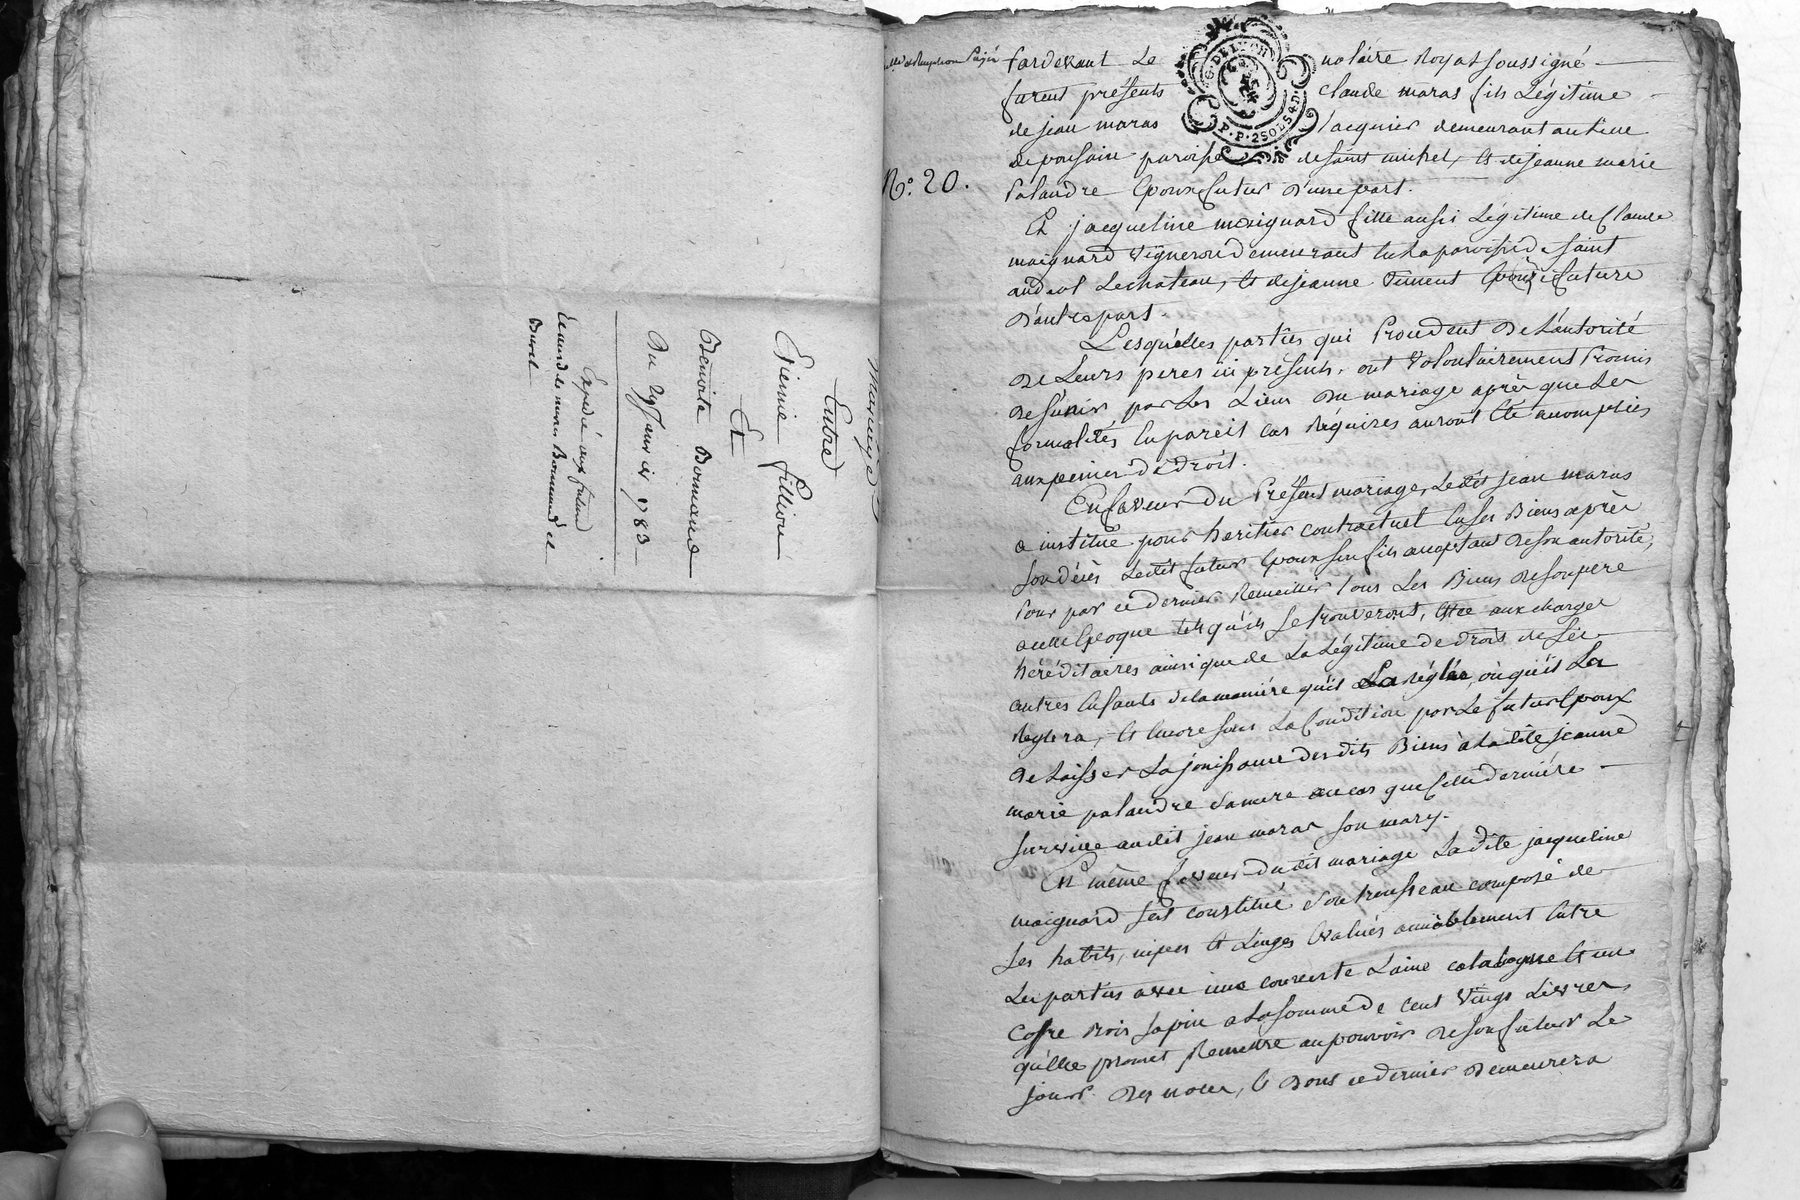 Mariage
Entre
Pierrie fillion
Et
Benoite Bonnand
Du 29 Janvier 1783
Expedié aux futurs
Burel
N.º 20.
G. DE LYON
P. P. 2 SOLS 8 D.
Pardevant Le notaire Royal soussigné
furent présents claude maras fils Légitime
de jean maras demeurant au lieu
paroisse de saint michel, et de jeanne marie
Palandre Epoux futur d'une part.
Et jacqueline maignard fille aussi Légitime de Claude
maignard Vigneron demeurant en la paroisse de saint
andeol Lechateau, et de jeanne Epouse future
d'autre part.
Lesquelles parties qui Procedent de L'autorité
de Leurs peres ici présents, ont volontairement Promis
de s'unir par les Liens du mariage après que Les
formalités En pareil cas Réquises auront été accomplies
aux peines de droit.
En faveur du Présent mariage, Ledit jean maras
a institué pour heritier contractuel En ses Biens après
son décès Ledit futur Epoux son fils acceptant de son autorité,
Pour par ce dernier Recueillir tous Les Biens de son pere
a cette Epoque tels qu'ils se trouveront, Et ce aux charges
héréditaires ainsi que de La Légitime de droit de ses
autres Enfants de la maniére qu'il La réglée, ou qu'il La
Reglera, et Encore sous La Condition par Le futur Epoux
de Laisser La jouissance desdits Biens à Ladite jeanne
marie palandre sa mere au cas que cette derniére
survive audit jean maras son mary.
En même faveur dudit mariage La dite jacqueline
maignard s'est constitué son trousseau composé de
ses habits, nipes et Linges évalués amiablement Entre
Les parties avec une couverte Laine catalogne et un
Coffre Bois sapin a La somme de cent Vingt Livres
qu'elle promet Remettre au pouvoir de son futur Le
jour des noces, et dont ce dernier demeurera